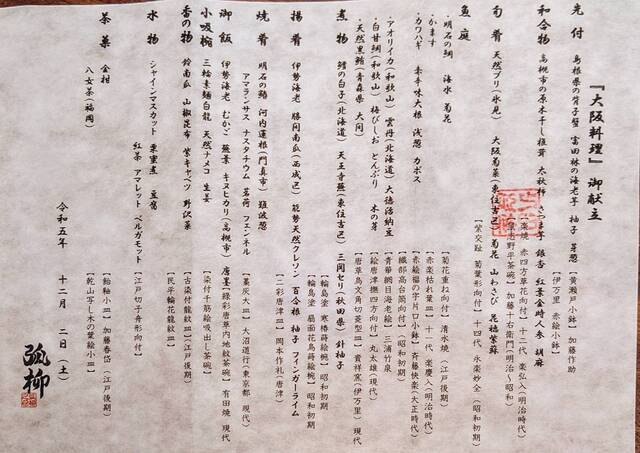 『大阪料理』御献立
先付 島根県の背子蟹 富田林の海老芋 柚子 芽葱
【黄瀬戸小鉢】 加藤作助
【伊万里 赤絵小鉢】
和合物 高槻市の原木干し椎茸 太秋柿 さつま芋 銀杏 紅葉金時人参 胡麻
【楽焼 赤四方草花向付】 十二代 楽弘入(明治時代)
旬肴 天然ブリ(氷見) 大阪菊菜(東住吉区) 菊花 山わさび 花穂紫蘇
加藤十右衛門(明治~昭和)
【紫交趾 菊葉形向付】 十四代 永楽妙全(昭和初期)
魚庭
・明石の鯛 海水 菊花
【菊花重ね向付】 清水焼(江戸後期)
・かます
【赤楽枯れ葉皿】 十一代 楽慶入(明治時代)
・カワハギ 赤辛味大根 浅葱 カボス
【赤絵福の字片口小鉢】 斉藤快楽(大正時代)
【織部高台筒向付】(昭和初期)
・アオリイカ(和歌山) 雲丹(北海道) 大徳活納豆
【青華網目海老絵】 三浦竹泉
・白甘鯛(和歌山) 梅びしお とんぶり 木の芽
【絵唐津撫四方向付】 丸太雄(現代)
・天然黒鮪(青森県 大間)
【唐草鳥文角切菱型皿】 貴祥窯(伊万里)現代
煮物 鱈の白子(北海道) 天王寺蕪(東住吉区) 三関せり(秋田県) 針柚子
【輪島塗 寒椿蒔絵椀】 昭和初期
【輪島塗 扇面花鳥蒔絵椀】 昭和初期
揚肴 伊勢海老 勝間南瓜(西成区) 能勢天然クレソン 百合根 柚子 フィンガーライム
【二彩唐津皿】 岡本作礼(唐津)
焼肴 明石の鰆 河内蓮根(門真市) 難波葱
アマランサス ナスタチウム 茗荷 フェンネル
【墨灰大皿】 大沼道行(東京都 現代)
御飯 伊勢海老 むかご 蕪葉 キヌヒカリ(高槻市) 唐墨
【緑彩唐草内地紋茶碗】 有田焼 現代
小吸椀 三輪素麺白龍 天然ナメコ 生姜
【染付千筋絵吸出し茶碗】
香の物 鈴南瓜 山椒昆布 紫キャベツ 野沢菜
【古染付龍紋皿】(江戸後期)
【民平輪花龍紋皿】
水物 シャインマスカット 栗蜜煮 豆腐
紅茶 アマレット ベルガモット
【江戸切子舟形向付】
茶菓 金柑
八女茶(福岡)
【飴釉小皿】 加藤春岱(江戸後期)
【乾山写し木の葉絵小皿】
令和五年 十二月 二日(土)
弧柳